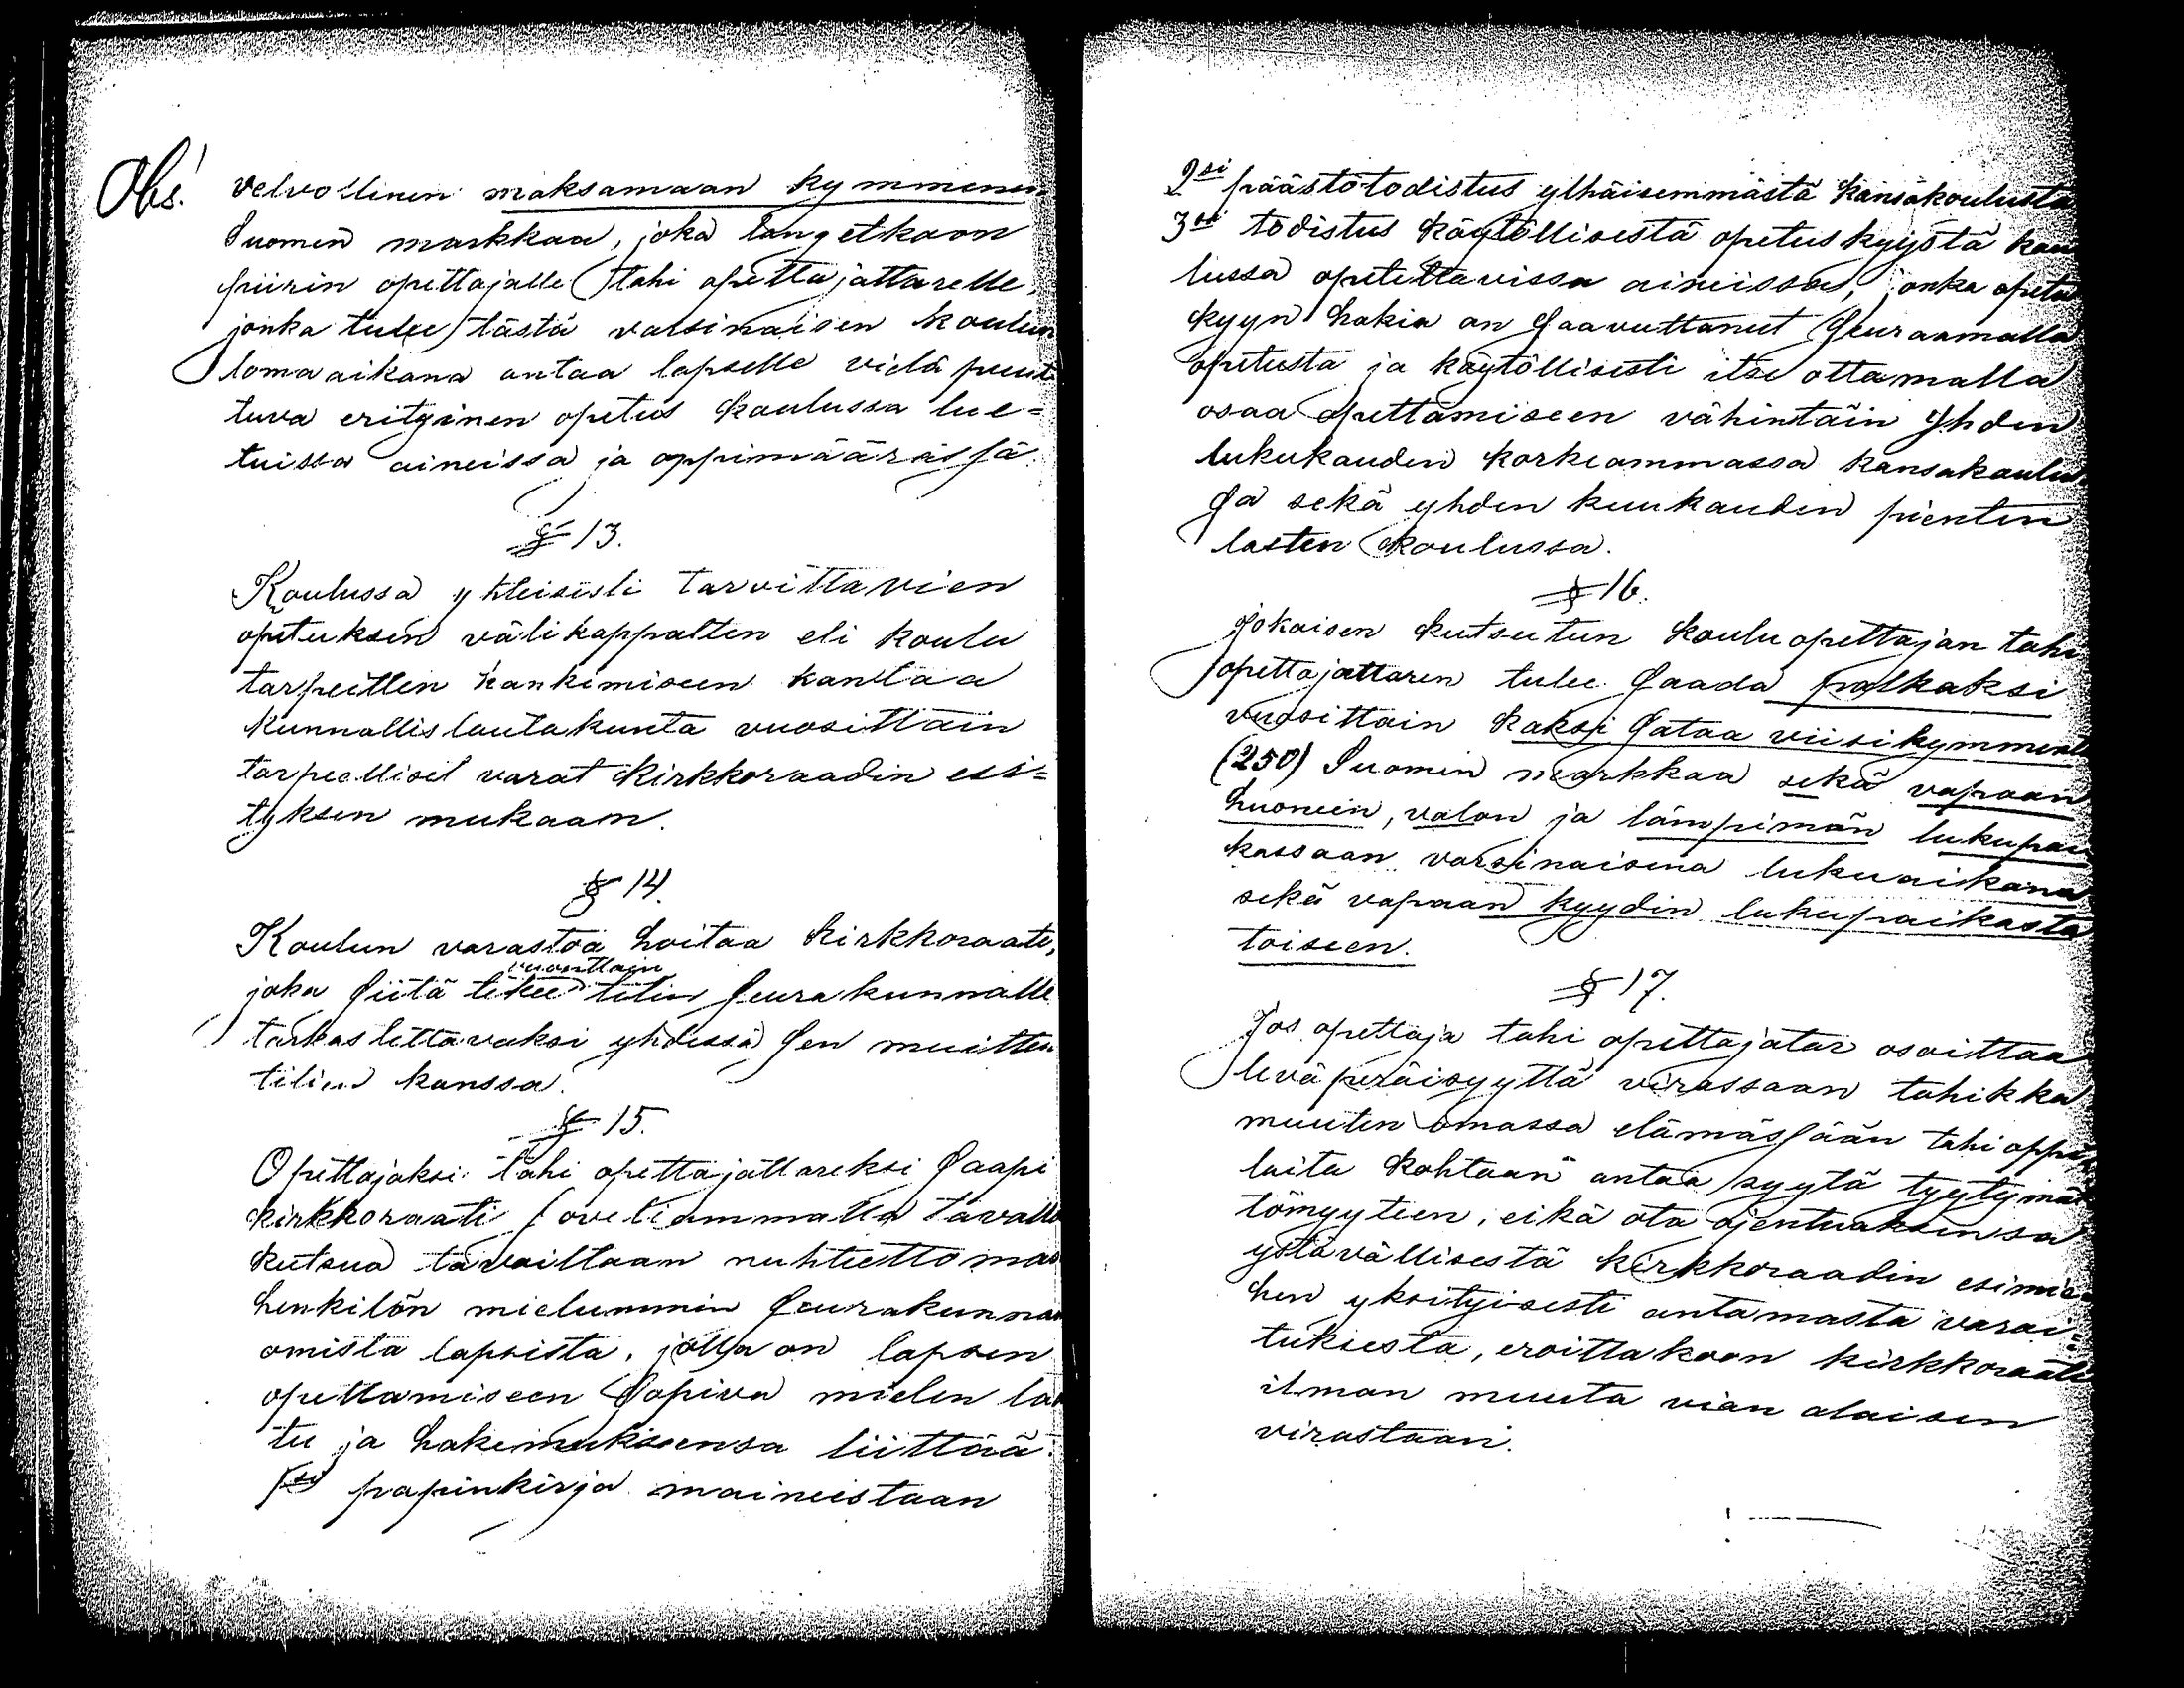 Obs! velvollinen maksamaan kymmenen
Suomen markkaa, joka langetkoon
piirin opettajalle tahi opettajattarelle,
jonka tulee tästä varsinaisen koulun
loma aikana antaa lapselle vielä puut
tuva erityinen opetus koulussa lue=
tuissa aineissa ja oppimäärässä.
§ 13.
Koulussa yhteisesti tarvittavien
opetuksen välikappalten eli koulu
tarpeitten hankimiseen kantaa
kunnallislautakunta vuosittain
tarpeelliset varat kirkkoraadin esi=
tyksen mukaan.
§ 14.
Koulun varastoa hoitaa kirkkoraati,
vuosittain
joka siitä tekee tilin seurakunnalle
tarkastettavaksi yhdessä sen muitten
tilien kanssa.
§ 15.
Opettajaksi tahi opettajattareksi saapi
kirkkoraati soveliammalla tavalla
kutsua tavoiltaan nuhteettoman
henkilön mielummin seurakunnan
omista lapsista, jolla on lapsen
opettamiseen sopiva mielen laa
tu ja hakemukseensa liittää:
1si papinkirja maineestaan
2si päästötodistus ylhäisemmästä kansakoulusta
3si todistus käytöllisestä opetuskyystä kou
lussa opetettavissa aineissa, jonka opetus
kyyn hakia on saavuttanut seuraamalla
opetusta ja käytöllisesti itse ottamalla
osaa opettamiseen vähintäin yhden
lukukauden korkeammassa kansakoulus
sa sekä yhden kuukauden pienten
lasten koulussa.
§ 16.
Jokaisen kutsutun kouluopettajan tahi
opettajattaren tulee saada palkaksi
vuosittain kaksi sataa viisikymmentä
(250) Suomen markkaa sekä vapaan
huoneen, valon ja lämpimän lukupai
kassaan varsinaisena lukuaikana
sekä vapaan kyydin lukupaikasta
toiseen.
§ 17.
Jos opettaja tahi opettajatar osoittaa
leväperäisyyttä virassaan tahikka
muuten omassa elämässään tahi oppi
laita kohtaan antaa syytä tyytymät
tömyyteen, eikä ota ojentuaksensa
ystävällisestä kirkkoraadin esimie=
hen yksityisesti antamasta varoi=
tuksesta, eroittakoon kirkkoraati
ilman muuta vian alaisen
virastaan.